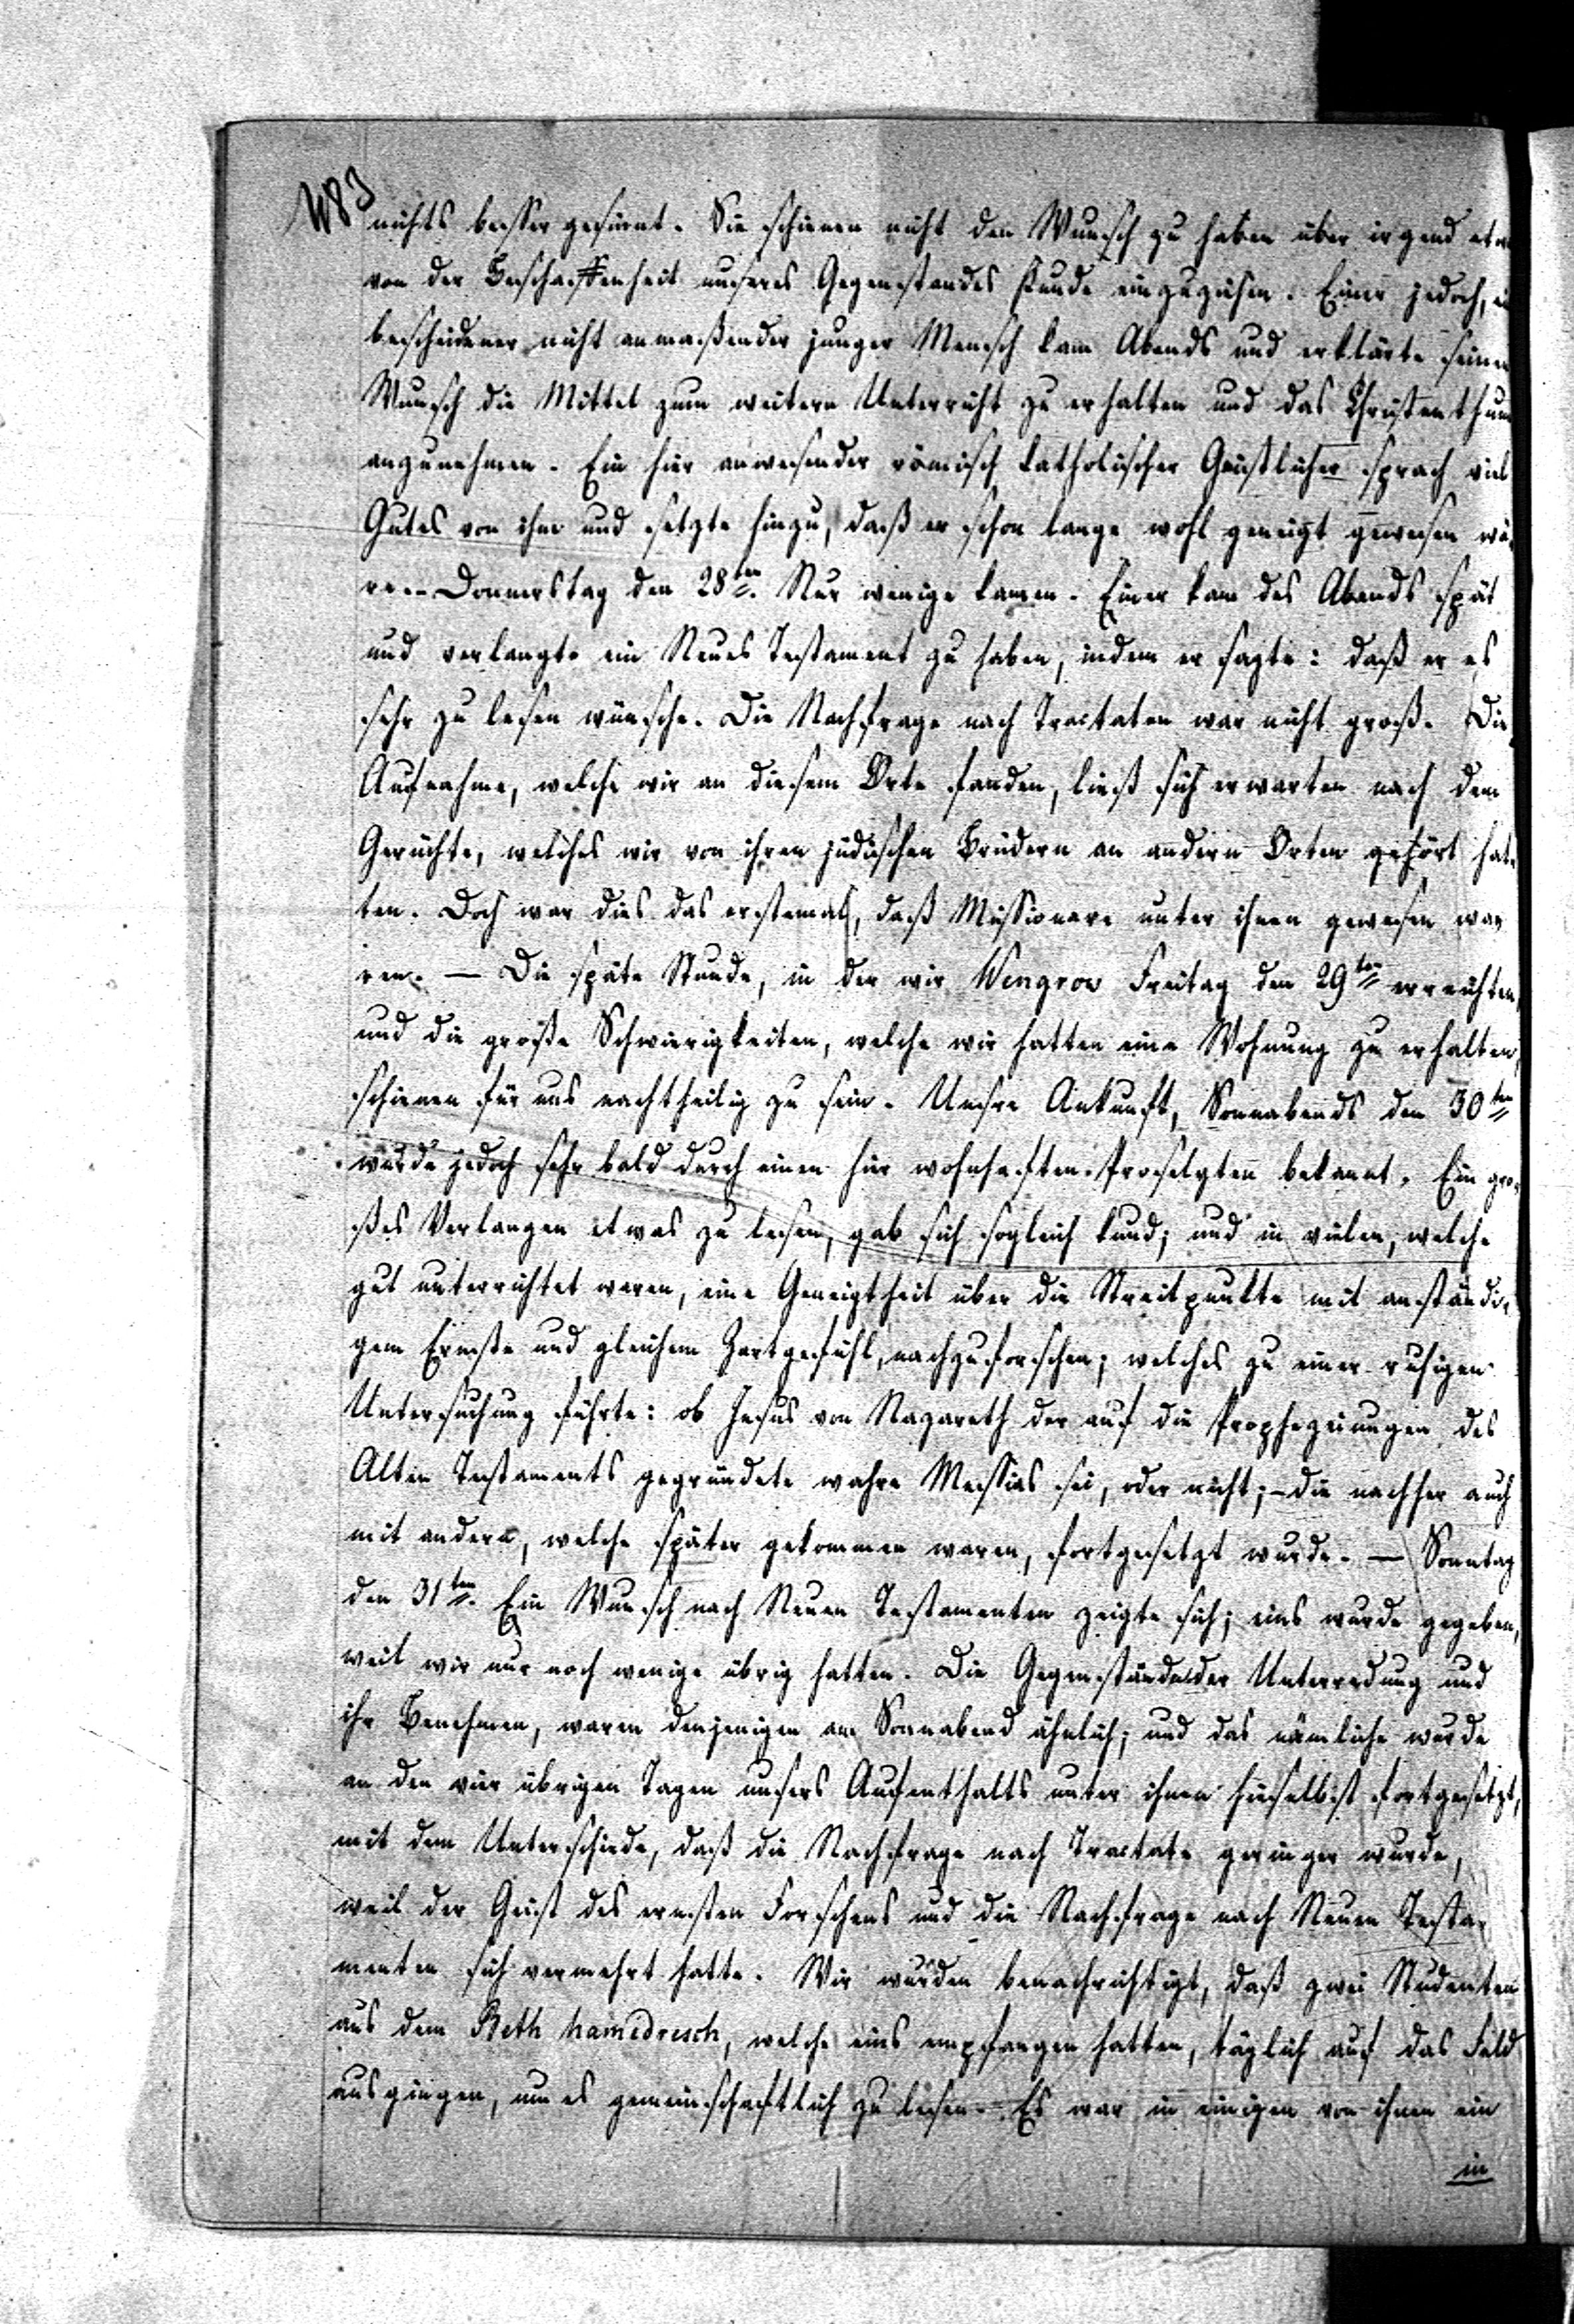 483
nichts besser gesinnt. Sie schienen nicht den Wunsch zu haben über irgend etw
von der Beschaffenheit unseres Gegenstandes Kunde einzuziehen. Einer jedoch, ei
bescheidener nicht anmaßender junger Mensch kam Abends und erklärte seinen
Wunsch die Mittel zum weitern Unterricht zu erhalten und das Christenthum
anzunehmen. Ein hier anwesender römisch katholischer Geistlicher sprach viel
Gutes von ihm und setzte hinzu, daß er schon lange wohl geneigt gewesen wä-
re. - Donnerstag den 28ten. Nur wenige kamen. Einer kam des Abends spät
und verlangte ein Neues Testament zu haben, indem er sagte: daß er es
sehr zu lesen wünsche. Die Nachfrage nach Tractaten war nicht groß. Die
Aufnahme, welche wir an diesem Orte fanden, ließ sich erwarten nach dem
Gerüchte, welches wir von ihren jüdischen Brüdern an andern Orten gehört hat-
ten. Doch war dies das erstemal, daß Missionare unter ihnen gewesen wa-
ren. — Die späte Stunde, in der wir Wengrow Freitag den 29ten erreichten,
und die große Schwierigkeiten, welche wir hatten eine Wohnung zu erhalten,
schienen für uns nachtheilig zu sein. Unsre Ankunft, Sonnabends den 30ten
wurde jedoch sehr bald durch einen hier wohnhaften Proselyten bekannt. Ein gro-
ßes Verlangen etwas zu lesen, gab sich sogleich kund; und in vielen, welche
gut unterrichtet waren, eine Geneigtheit über die Streitpunkte mit anständi-
gem Ernste und gleichem Zartgefühl, nachzuforschen; welches zu einer ruhigen
Untersuchung führte: ob Jesus von Nazareth der auf die Prophezeiungen des
Alten Testaments gegründete wahre Messias sei, oder nicht; - die nachher auch
mit andern, welche später gekommen waren, fortgesetzt wurde. — Sonntag
den 31ten. Ein Wunsch nach Neuen Testamenten zeigte sich; eins wurde gegeben,
weil wir nur noch wenige übrig hatten. Die Gegenstände der Unterredung und
ihr Benehmen, waren denjenigen am Sonnabend ähnlich; und das nämliche wurde
an den vier übrigen Tagen unsers Aufenthalts unter ihnen hieselbst fortgesetzt,
mit dem Unterschiede, daß die Nachfrage nach Tractate geringer wurde,
weil der Geist des ernsten Forschens und die Nachfrage nach Neuen Testa-
menten sich vermehrt hatte. Wir wurden benachrichtigt, daß zwei Studenten
aus dem Beth hamidresch, welche eins empfangen hatten, täglich auf das Feld
ausgingen, um es gemeinschaftlich zu lesen. Es war in einigen von ihnen ein
in